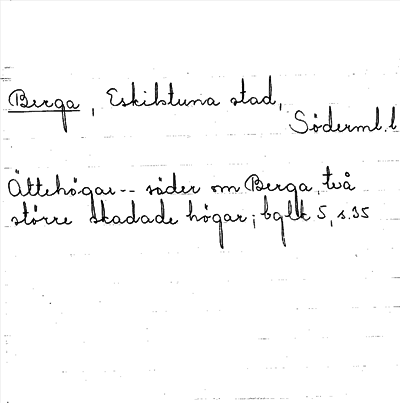 Berga, Eskilstuna stad,
Söderml. l
Ättehögar -- söder om Berga, två
större skadade högar; bglk 5, s. 35